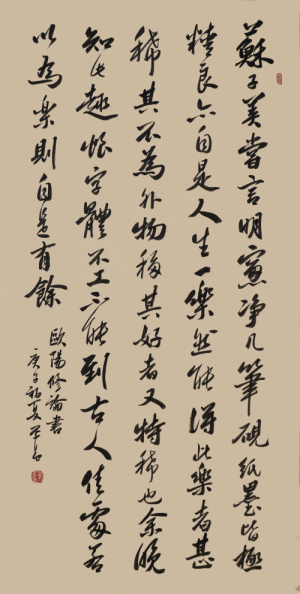 蘇子美嘗言明窻净几筆硯紙墨皆極
精良亦自是人生一樂然能得此樂者甚
稀其不為外物移其好者又特稀也余晚
知此趣恨字體不工不能到古人佳處若
以為楽則自是有餘
歐陽修論書
庚子初夏